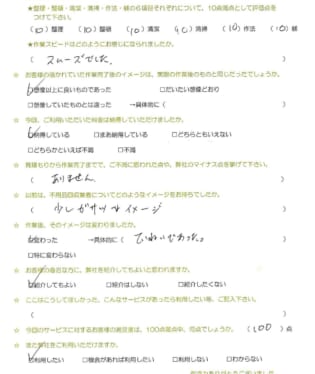 ★整理・整頓・清潔・清掃・作法・躾の6項目それぞれについて、10点満点として評価点を
つけて下さい。
(10)整理 (10)整頓 (10)清潔 (10)清掃 (10)作法 (10)躾
★作業スピードはどのようにお感じになられましたか。
( スムーズでした。 )
☆ お客様の描かれていた作業完了後のイメージは、実際の作業後のものと同じだったでしょうか。
☑想像以上に良いものであった □だいたい想像どおり
□想像していたものとは違った →具体的に( )
☆ 今回、ご利用いただいた料金は納得していただけましたか。
☑納得している □まあ納得している □どちらともいえない
□どちらかといえば不満 □不満
☆ 見積もりから作業完了までで、ご不満に思われた点や、弊社のマイナス点を挙げて下さい。
( ありません )
☆ 以前は、不用品回収業者についてどのようなイメージをお持ちでしたか。
( 少しガサツなイメージ )
☆ 作業後、そのイメージは変わりましたか。
☑変わった →具体的に( ていねいであった。 )
□特に変わらない
☆ お客様の身近な方に、弊社を紹介してもよいと思われますか。
☑紹介してもよい □紹介はしない □紹介したくない
☆ ここはこうしてほしかった、こんなサービスがあったら利用したい等、ご記入下さい。
( )
☆ 今回のサービスに対するお客様の満足度は、100点満点中、何点でしょうか。 (100)点
☆ また弊社をご利用いただけますか。
☑利用したい □機会があれば利用したい □利用しない □わからない